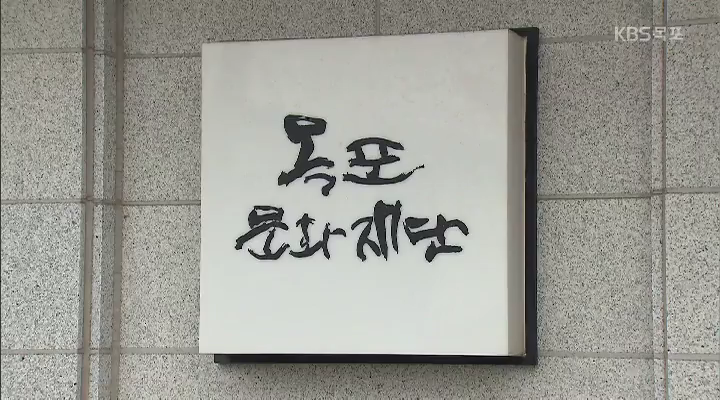 KBS목포
목포
문화재단